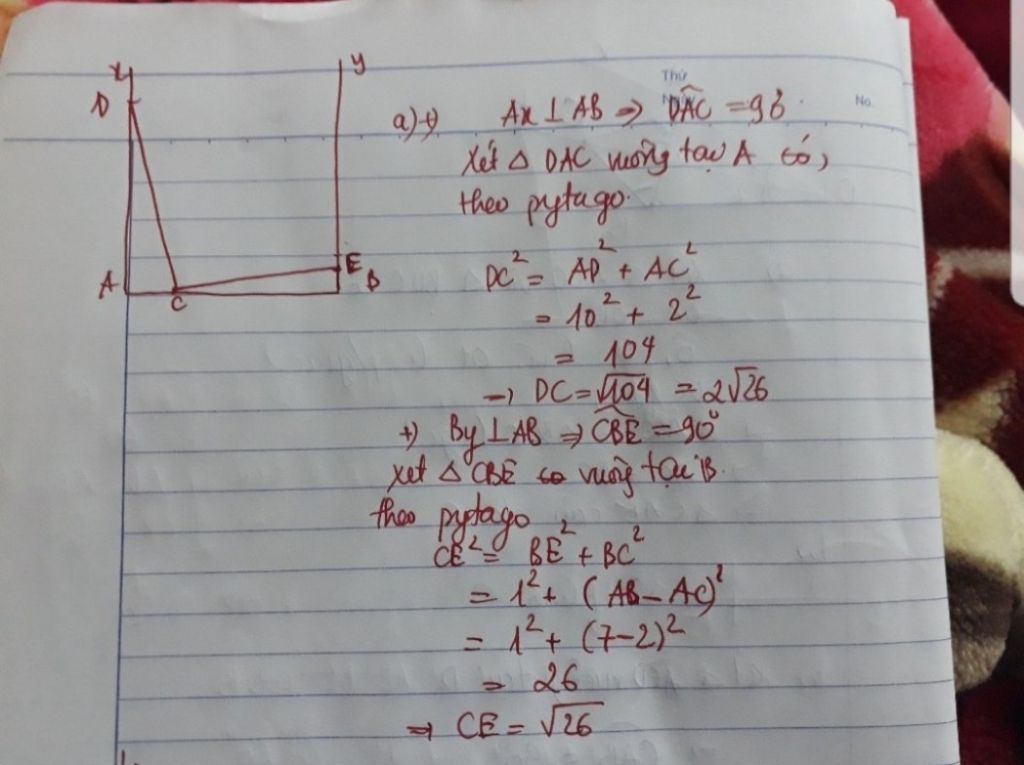 x
y
D
A
C
E
B
Thứ
No.
a) +) Ax ⊥ AB ⇒ DAC = 90°.
Xét △ DAC vuông tại A có,
theo pytago.
DC² = AD² + AC²
= 10² + 2²
= 104
→ DC = √104 = 2√26
+) By ⊥ AB ⇒ CBE = 90°
xét △ CBE có vuông tại B.
theo pytago
CE² = BE² + BC²
= 1² + (AB – AC)²
= 1² + (7-2)²
= 26
⇒ CE = √26